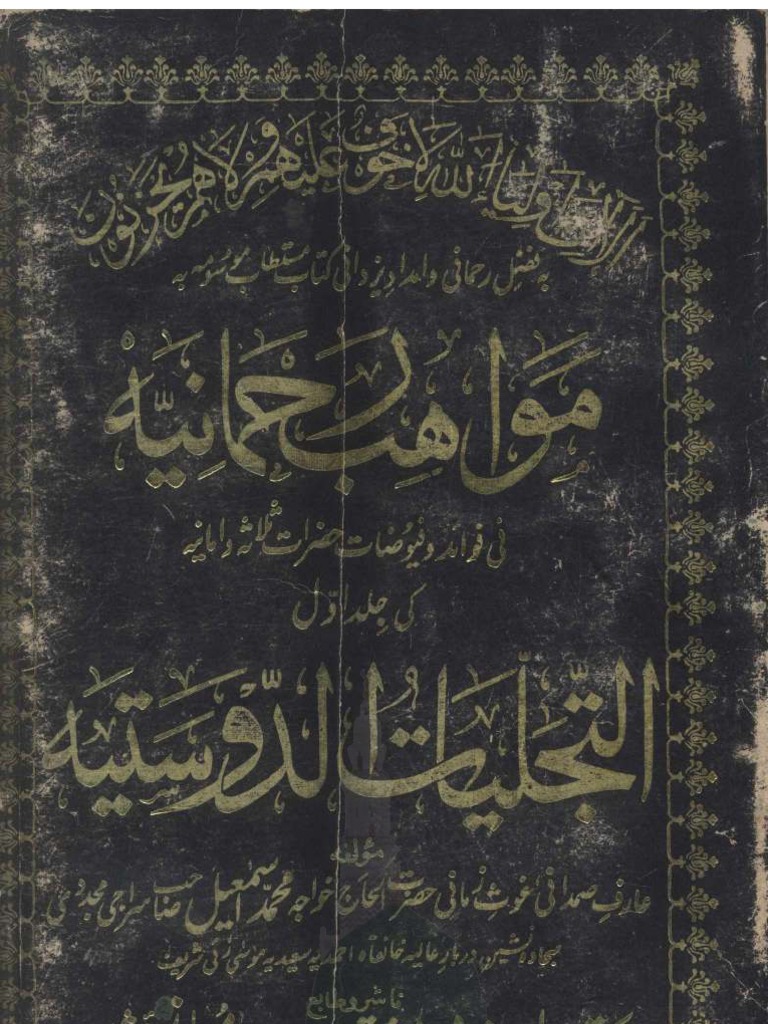 الا ان اولیاء الله لا خوف علیهم ولا هم یحزنون
به فضل رحمانی و امداد یزدانی کتاب مستطاب موسومه به
مَوَاهِبِ رَحمَانِیَّه
فی فوائد و فیوضات حضرات ثلاثه دامانیه
کی جلد اوّل
التَّجَلِّیَاتُ الدُّوسْتِیَه
مؤلفه
عارف صمدانی غوث زمانی حضرت الحاج خواجه محمد اسمٰعیل صاحب سراجی مجددی
سجاده نشین دربار عالیه خانقاه احمدیه سعیدیه موسیٰ زئی شریف
ناشر و طابع